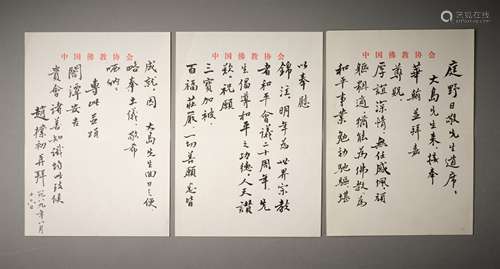 中国佛教协会
庭野日敬先生道席：
大島先生来接奉
華翰並拜嘉
尊貺
厚誼深情無任感佩頃
為佛教為
和平事業勉効馳驅堪
中国佛教协会
以奉慰
錦注明年為世界宗教
者和平會議二十周年先
生倡導和平之功德人天讚
歎祝願
三寶加被
百福莊嚴一切善願悉皆
中国佛教协会
成就因大島先生回日之便
略奉土儀敬希
哂納
專此並頌
闔潭安吉
貴會諸善知識均此致候
趙樸初再拜